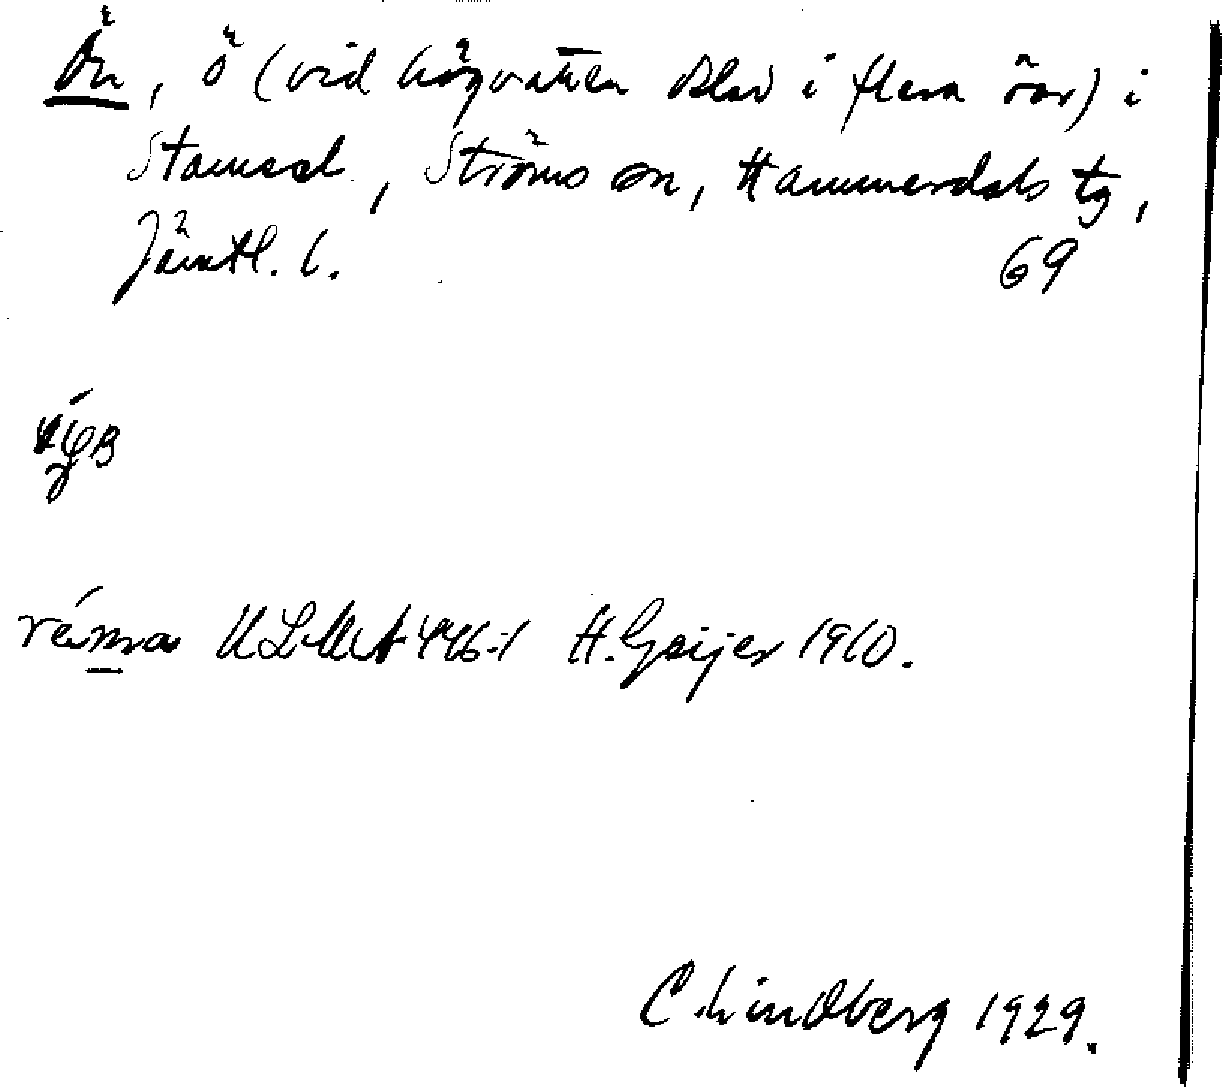 Ön, ö (vid högvatten delad i flera öar) i
Stamsel, Ströms sn, Hammerdals tg,
Jämtl. l.                69
ULMA 446:1 H. Geijer 1910.
C. Lindberg 1929.